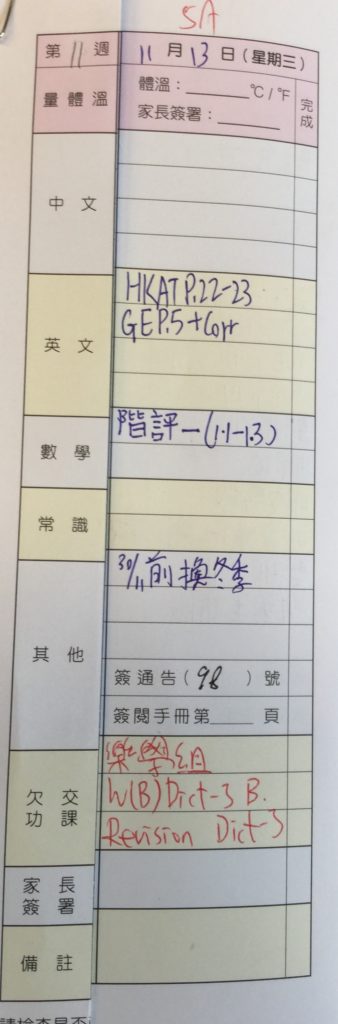 5A
第11週 11月13日(星期三)
量體溫 體溫：______℃/℉ 完成
家長簽署：______
中文
英文 HKAT P.22-23
GE P.5 + Corr
數學 階評一(1.1-1.3)
常識
其他 30/11前換冬季
簽通告(98)號
簽閱手冊第____頁
欠交功課 樂學組
W(B) Dict-3 B.
Revision Dict-3
家長簽署
備註